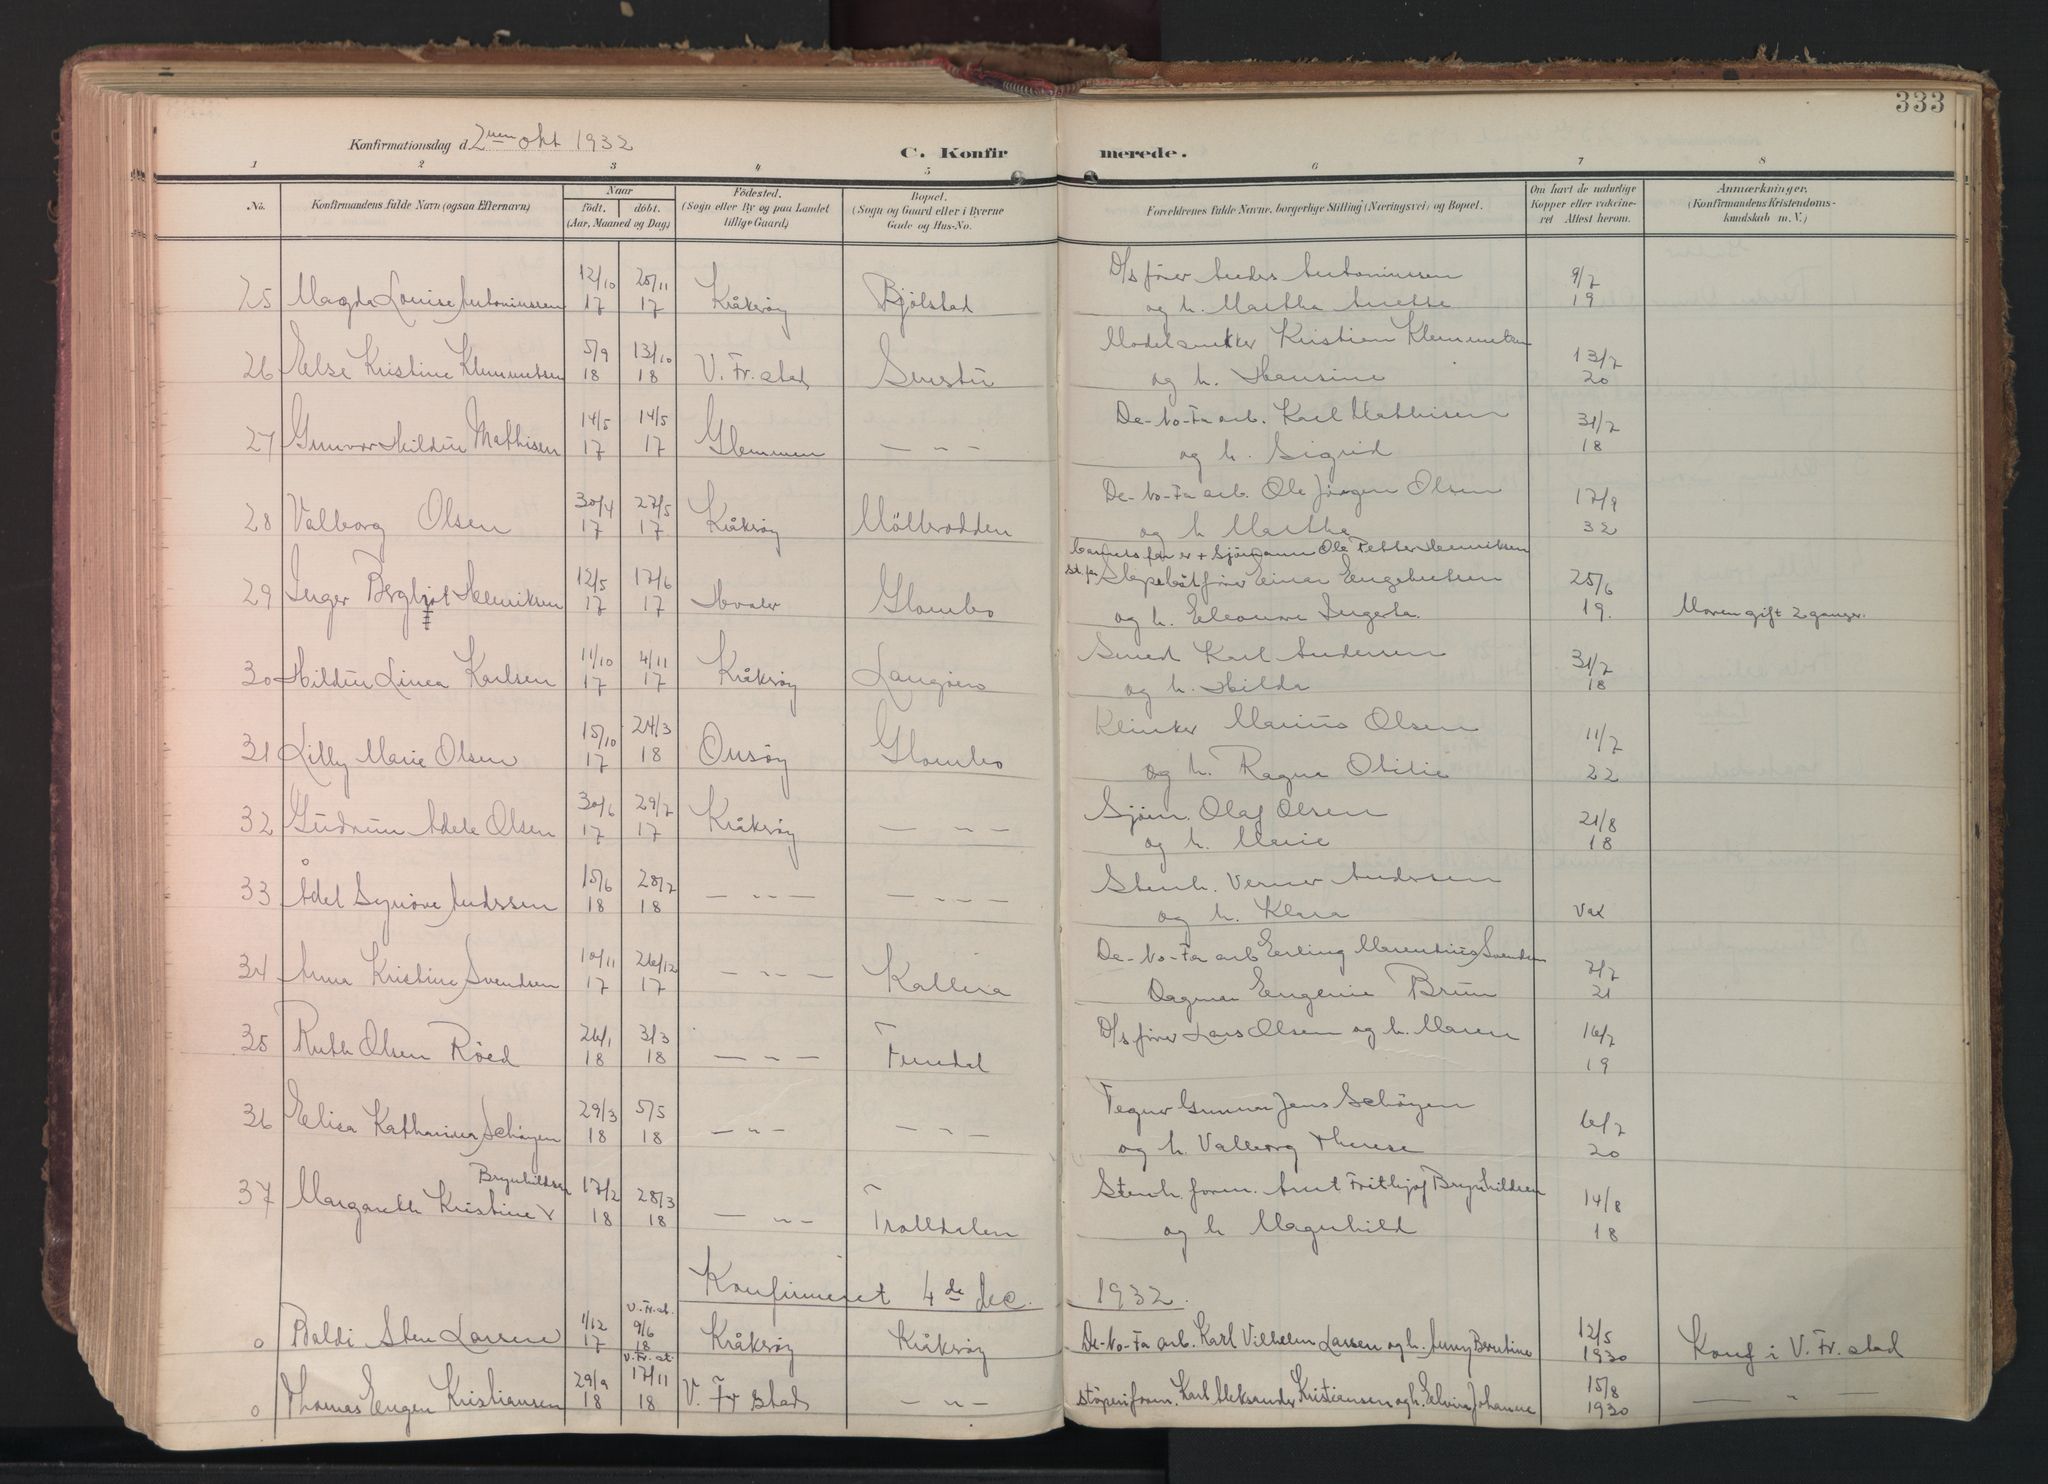 333
Konfirmationsdag d. 2nen okt 1932
C. Konfirmerede.
1 2 3 4 5 6 7 8
No.
Konfirmandens fulde Navn (ogsaa Efternavn)
Naar
födt. döbt.
(Aar, Maaned og Dag)
Födested.
(Sogn eller By og paa Landet
tillige Gaard)
Bopæl.
(Sogn og Gaard eller i Byerne
Gade og Hus-No.
Forældrenes fulde Navne, borgerlige Stilling (Næringsvei) og Bopæl.
Om havt de naturlige
Kopper eller vakcine-
ret Attest herom.
Anmærkninger.
(Konfirmandens Kristendoms-
kundskab m. V.)
25 Magda Louise Antoniussen 12/10 17 25/11 17 Kråkröy Bjölstad D/s förer Anders Antoniussen 9/7 19
og h. Martha Anette
26 Else Kristine Klemmetsen 5/9 18 13/10 18 V. Fr. stad Smestu Modelsnekker Kristian Klemmetsen 13/7 20
og h. Hansine
27 Gunvor Hildur Mathisen 14/5 17 14/5 17 Glemmen — " — De-No-Fa arb. Karl Mathisen 31/7 18
og h. Sigrid
28 Valborg Olsen 30/4 17 27/5 17 Kråkröy Mölbrodden De-No-Fa arb. Ole Jörgen Olsen 17/9 32
og h Martha
barnets far er + Sjömann Ole Petter Henriksen
29 Inger Bergljot Henriksen 12/5 17 17/6 17 Hvaler Glombo st. far Slepebåtförer Einar Engebretsen 25/6 19. Moren gift 2 ganger.
og h. Eleonore Ingerta.
30 Hildur Linea Karlsen 11/10 17 4/11 17 Kråkröy Langöen Smed Karl Andersen 31/7 18
og h. Hilda
31 Lilly Marie Olsen 15/10 17 24/3 18 Onsöy Glombo Klinker Marius Olsen 11/7 22
og h. Ragna Otilie
32 Gudrun Adele Olsen 30/6 17 29/7 17 Kråkröy — " — Sjöm. Olaf Olsen 21/8 18
og h. Marie
33 Ådel Synöve Andersen 15/6 18 28/7 18 — " — — " — Stenh. Verner Andersen
og h. Klara vax
34 Anna Kristine Svendsen 10/11 17 26/12 17 — " — Kallera De-No-Fa arb Erling Marentius Svendsen 7/7 21
Dagmar Eugenie Brun
35 Ruth Olsen Röed 26/1 18 3/3 18 — " — Fundal D/s förer Lars Olsen og h. Maren 16/7 19
36 Elisa Katharina Schöyen 29/3 18 5/5 18 — " — — " — Tegner Gunnar Jens Schöyen 6/7 20
og h. Valborg Therese
37 Margareth Kristine Brynhildsen 17/2 18 28/3 18 — " — Trolldalen Stenh. form. Arnt Frithjof Brynhildsen 14/8 18
og h Magnhild
Konfirmeret 4de dec. 1932.
0 Baldi Sten Larsen 1/12 17 V. Fr. st. 9/6 18 Kråkröy Kråkröy De-No-Fa arb. Karl Vilhelm Larsen og h. Anny Berntine 12/5 1930 Konf i V. Fr. stad
0 Thomas Eugen Kristiansen 29/9 18 V. Fr. st. 17/11 18 V. Fr stad — " — Stöperiform. Karl Aleksander Kristiansen og h. Elvira Johanne 15/8 1930 — " —